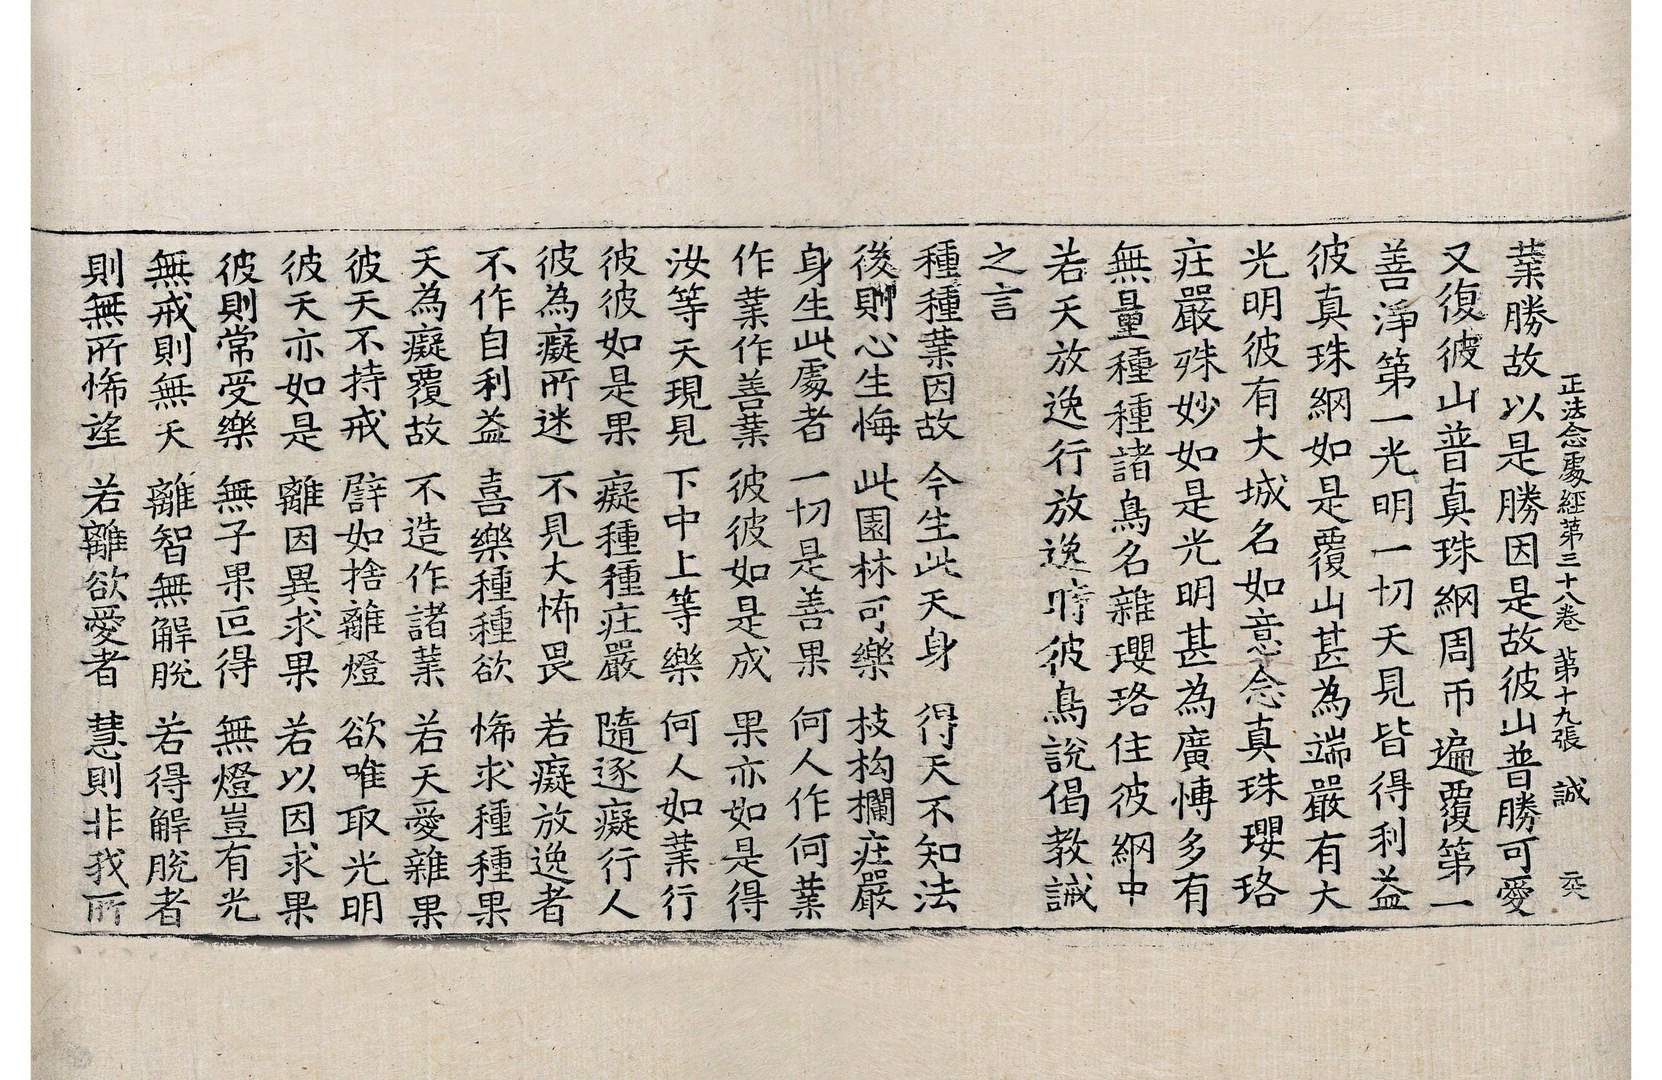 正法念處經第三十八卷 第十九張 誠
業勝故以是勝因是故彼山普勝可愛
又復彼山普真珠網周帀遍覆第一
善淨第一光明一切天見皆得利益
彼真珠網如是覆山甚為端嚴有大
光明彼有大城名如意念真珠瓔珞
庄嚴殊妙如是光明甚為廣博多有
無量種種諸鳥名雜瓔珞住彼網中
若天放逸行放逸時彼鳥說偈教誡
之言
種種業因故 今生此天身 得天不知法
後則心生悔 此園林可樂 枝构欄庄嚴
身生此處者 一切是善果 何人作何業
作業作善業 彼彼如是成 果亦如是得
汝等天現見 下中上等樂 何人如業行
彼彼如是果 癡種種庄嚴 隨逐癡行人
彼為癡所迷 不見大怖畏 若癡放逸者
不作自利益 喜樂種種欲 悕求種種果
天為癡覆故 不造作諸業 若天愛雜果
彼天不持戒 譬如捨離燈 欲唯取光明
彼天亦如是 離因異求果 若以因求果
彼則常受樂 無子果叵得 無燈豈有光
無戒則無天 離智無解脫 若得解脫者
則無所悕望 若離欲愛者 慧則非我所